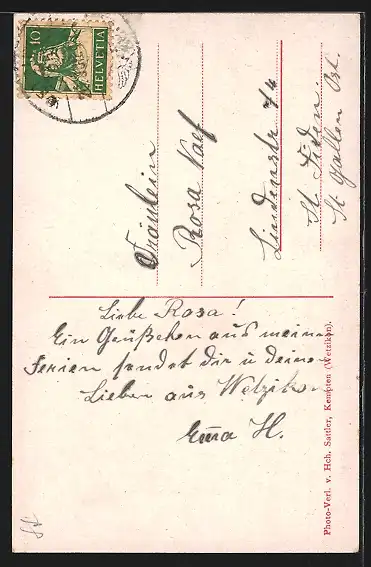 10
HELVETIA
Fräulein
Rosa Naef
Lindenstr
St Fiden
St Gallen Ost.
Liebe Rosa!
Ein Grüßchen aus meinen
Ferien sendet dir u deinen
Lieben aus Wetzikon
H.
Photo-Verl. v. Hch. Sattler, Kempten (Wetzikon).